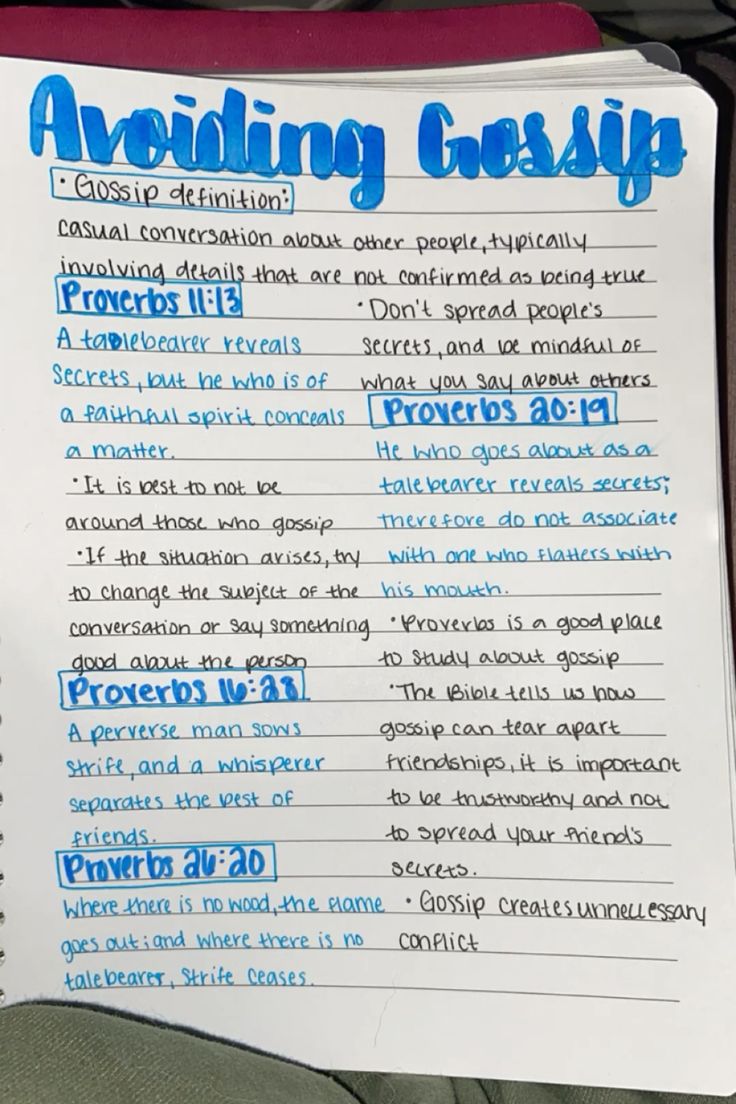 Avoiding Gossip
• Gossip definition:
casual conversation about other people, typically
involving details that are not confirmed as being true
Proverbs 11:13
A talebearer reveals
secrets, but he who is of
a faithful spirit conceals
a matter.
• It is best to not be
around those who gossip
• If the situation arises, try
to change the subject of the
conversation or say something
good about the person
Proverbs 16:28
A perverse man sows
strife, and a whisperer
separates the best of
friends.
Proverbs 26:20
Where there is no wood, the flame
goes out; and where there is no
talebearer, strife ceases.
• Don't spread people's
secrets, and be mindful of
what you say about others
Proverbs 20:19
He who goes about as a
talebearer reveals secrets;
therefore do not associate
with one who flatters with
his mouth.
• Proverbs is a good place
to study about gossip
• The Bible tells us how
gossip can tear apart
friendships, it is important
to be trustworthy and not
to spread your friend's
secrets.
• Gossip creates unneccessary
conflict